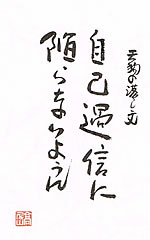 天狗の落し文
自己過信に
陥らないように